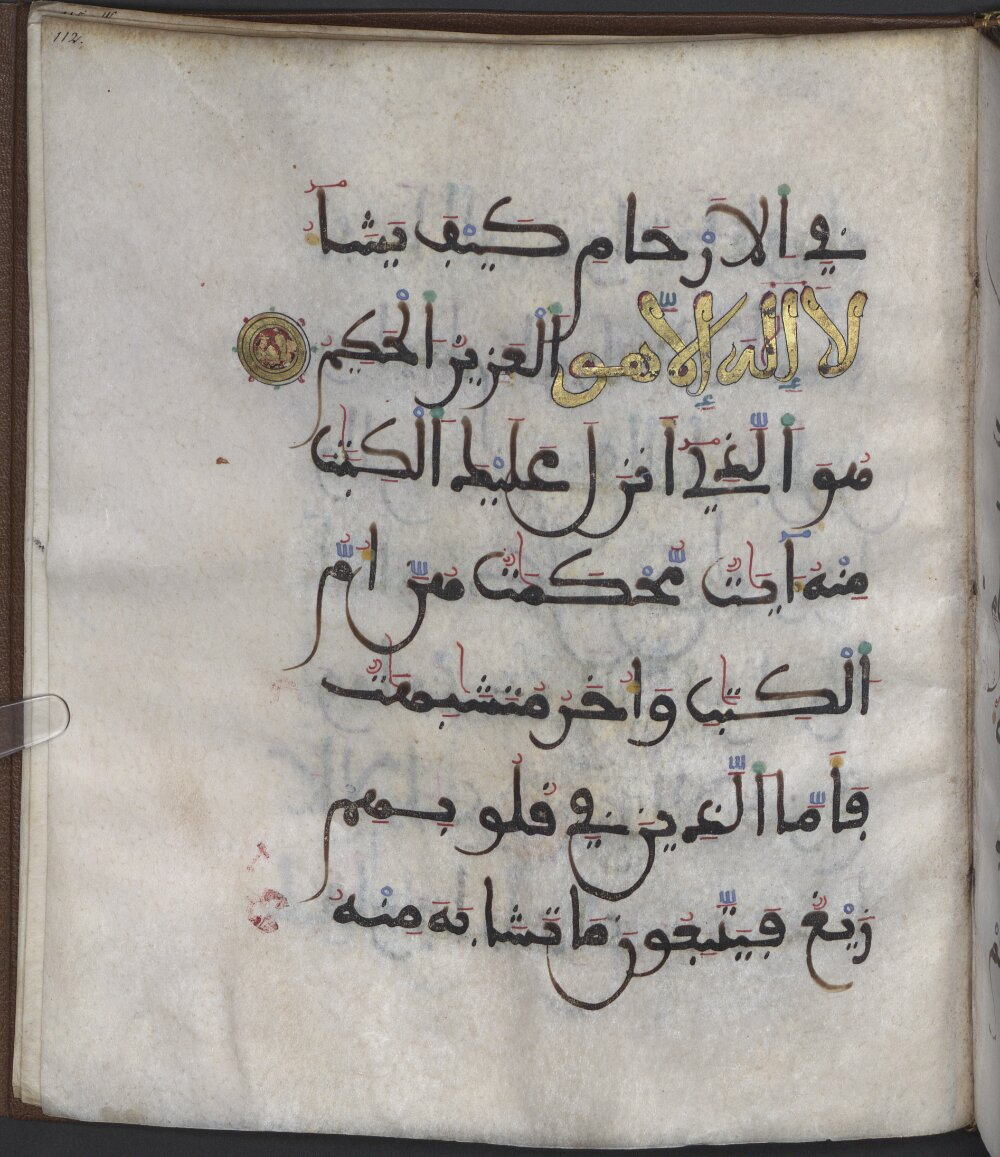 112.
في الارحام كيف يشا
لا إله إلا هو العزيز الحكيم
هو الذي انزل عليك الكتب
منه ايت محكمت هن ام
الكتب واخر متشبهت
فاما الذين في قلوبهم
زيغ فيتبعون ما تشابه منه